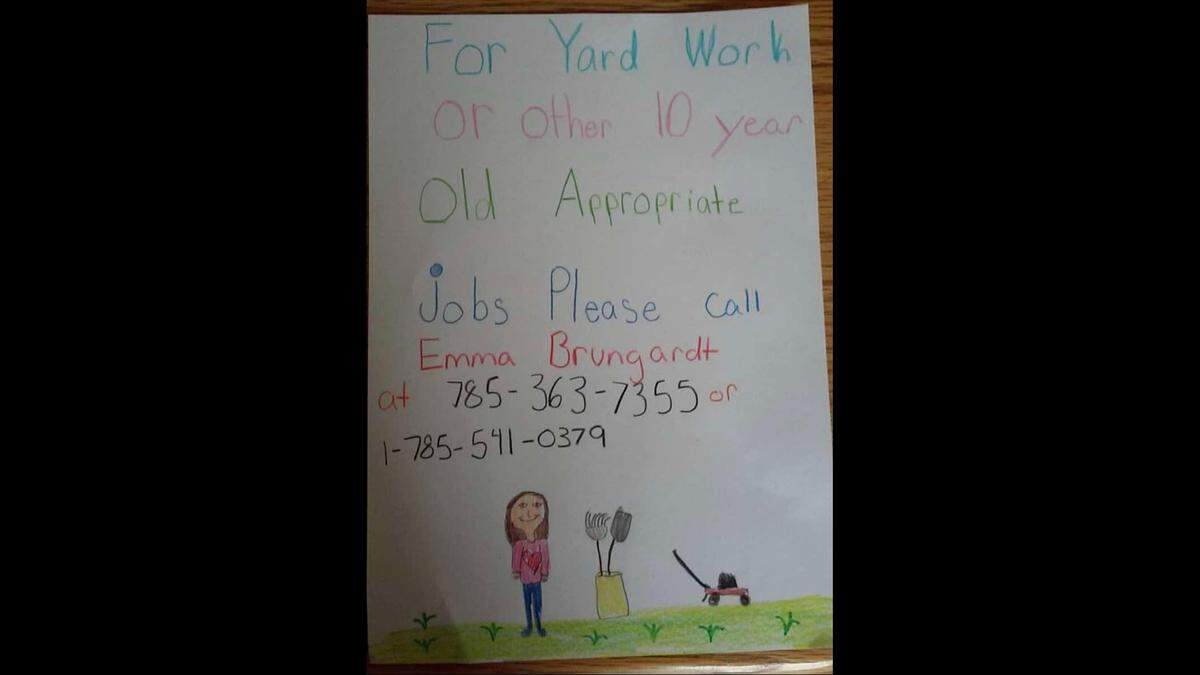 For Yard Work
or other 10 year
Old Appropriate
jobs Please call
Emma Brungardt
at 785-363-7355 or
1-785-541-0379